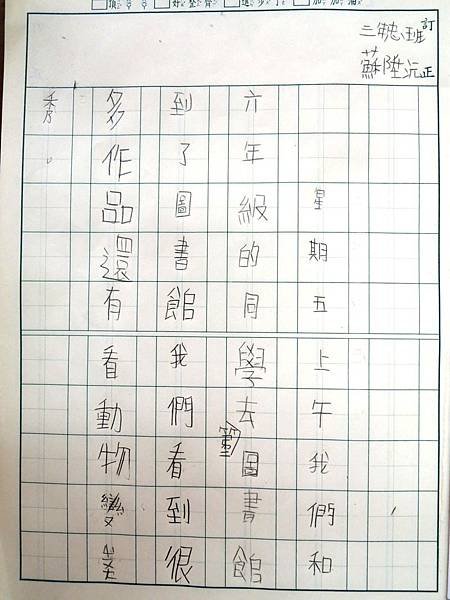 三年忠班
蘇陞沅
訂正
星期五上午我們和
六年級的同學去圖書館
到了圖書館我們看到很
多作品還有看動物變
秀。